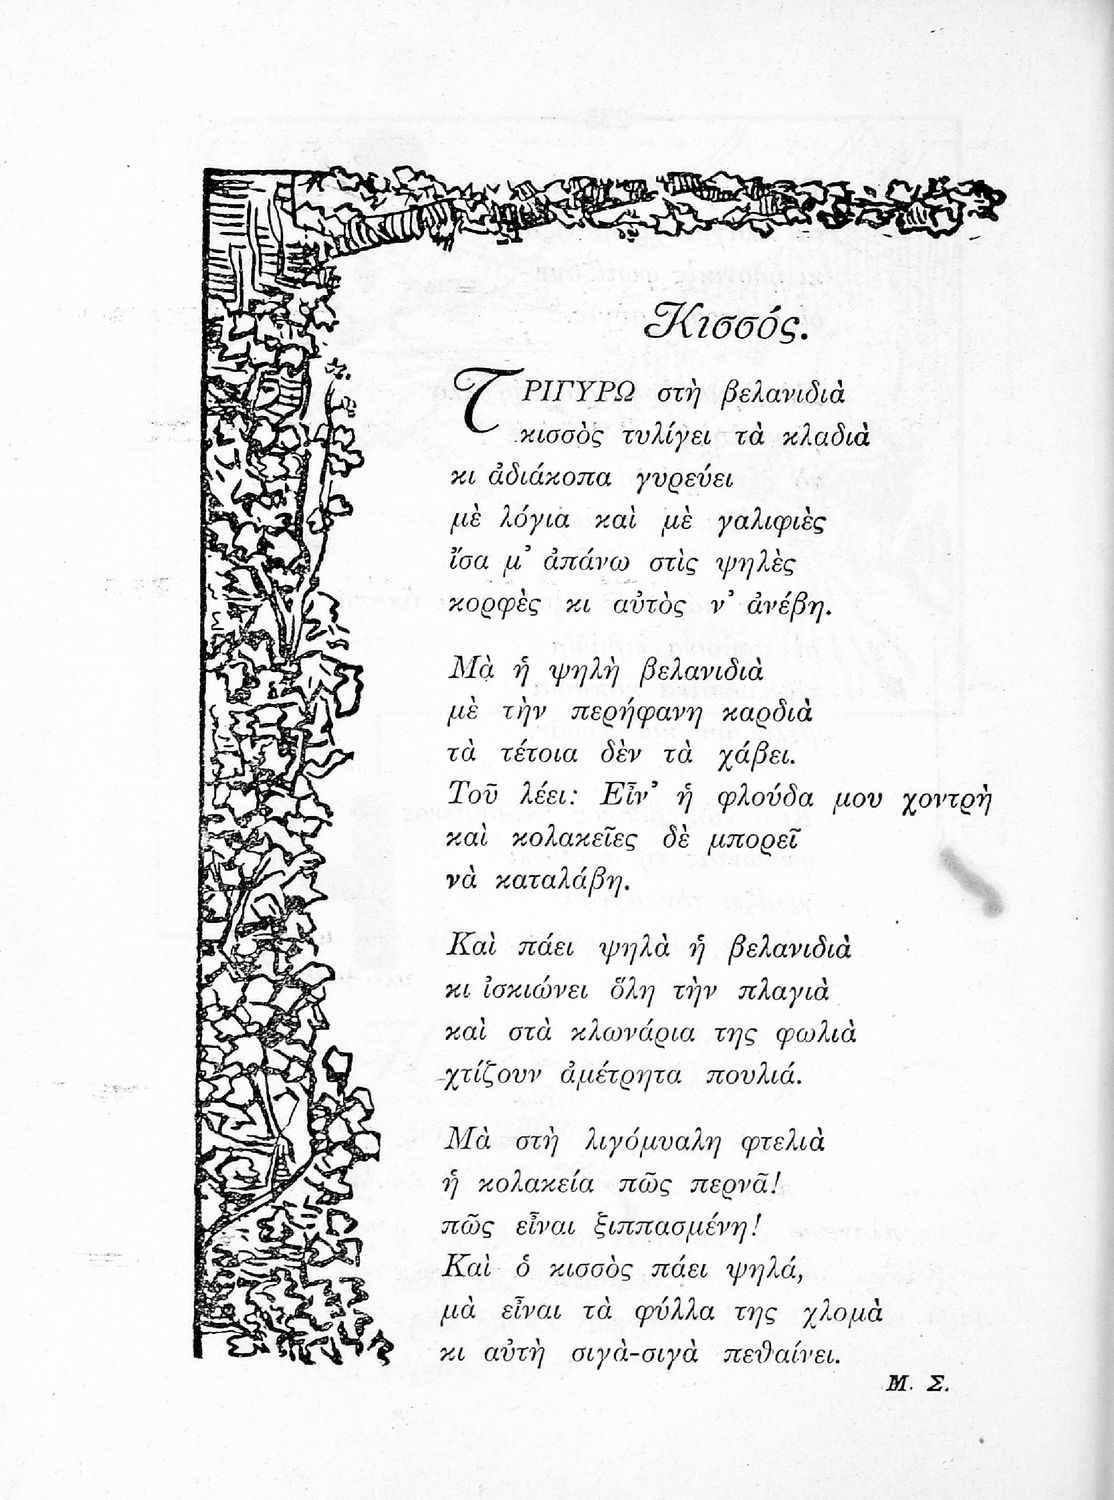 Κισσός.
ΤΡΙΓΥΡΩ στὴ βελανιδιὰ
κισσὸς τυλίγει τὰ κλαδιὰ
κι ἀδιάκοπα γυρεύει
μὲ λόγια καὶ μὲ γαλιφιὲς
ἴσα μ᾽ ἀπάνω στὶς ψηλὲς
κορφὲς κι αὐτὸς ν᾽ ἀνέβη.
Μὰ ἡ ψηλὴ βελανιδιὰ
μὲ τὴν περήφανη καρδιὰ
τὰ τέτοια δὲν τὰ χάβει.
Τοῦ λέει: Εἶν᾽ ἡ φλούδα μου χοντρὴ
καὶ κολακεῖες δὲ μπορεῖ
νὰ καταλάβη.
Καὶ πάει ψηλὰ ἡ βελανιδιὰ
κι ἰσκιώνει ὅλη τὴν πλαγιὰ
καὶ στὰ κλωνάρια της φωλιὰ
χτίζουν ἀμέτρητα πουλιά.
Μὰ στὴ λιγόμυαλη φτελιὰ
ἡ κολακεία πῶς περνᾶ!
πῶς εἶναι ξιππασμένη!
Καὶ ὁ κισσὸς πάει ψηλά,
μὰ εἶναι τὰ φύλλα της χλομὰ
κι αὐτὴ σιγὰ-σιγὰ πεθαίνει.
Μ. Σ.